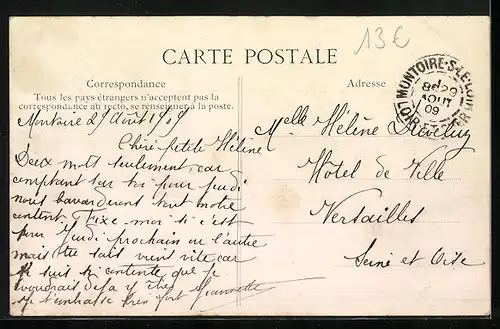 13€
CARTE POSTALE
Correspondance
Tous les pays étrangers n'acceptent pas la
correspondance au recto, se renseigner à la poste.
Adresse
MONTOIRE-S-LE-LOIR
29
AOUT
09
LOIR-ET-CHER
Montoire 29 Août 1909
Chère petite Hélène
Deux mots seulement, car
comptant sur toi pour jeudi
nous bavarderons tout notre
content. Fixe-moi si c'est
pour Jeudi prochain ou l'autre
mais viens vite car
je suis si contente que je
voudrais déjà y être
Je t'embrasse bien fort Jeannette
Melle Hélène
Hôtel de Ville
Versailles
Seine et Oise